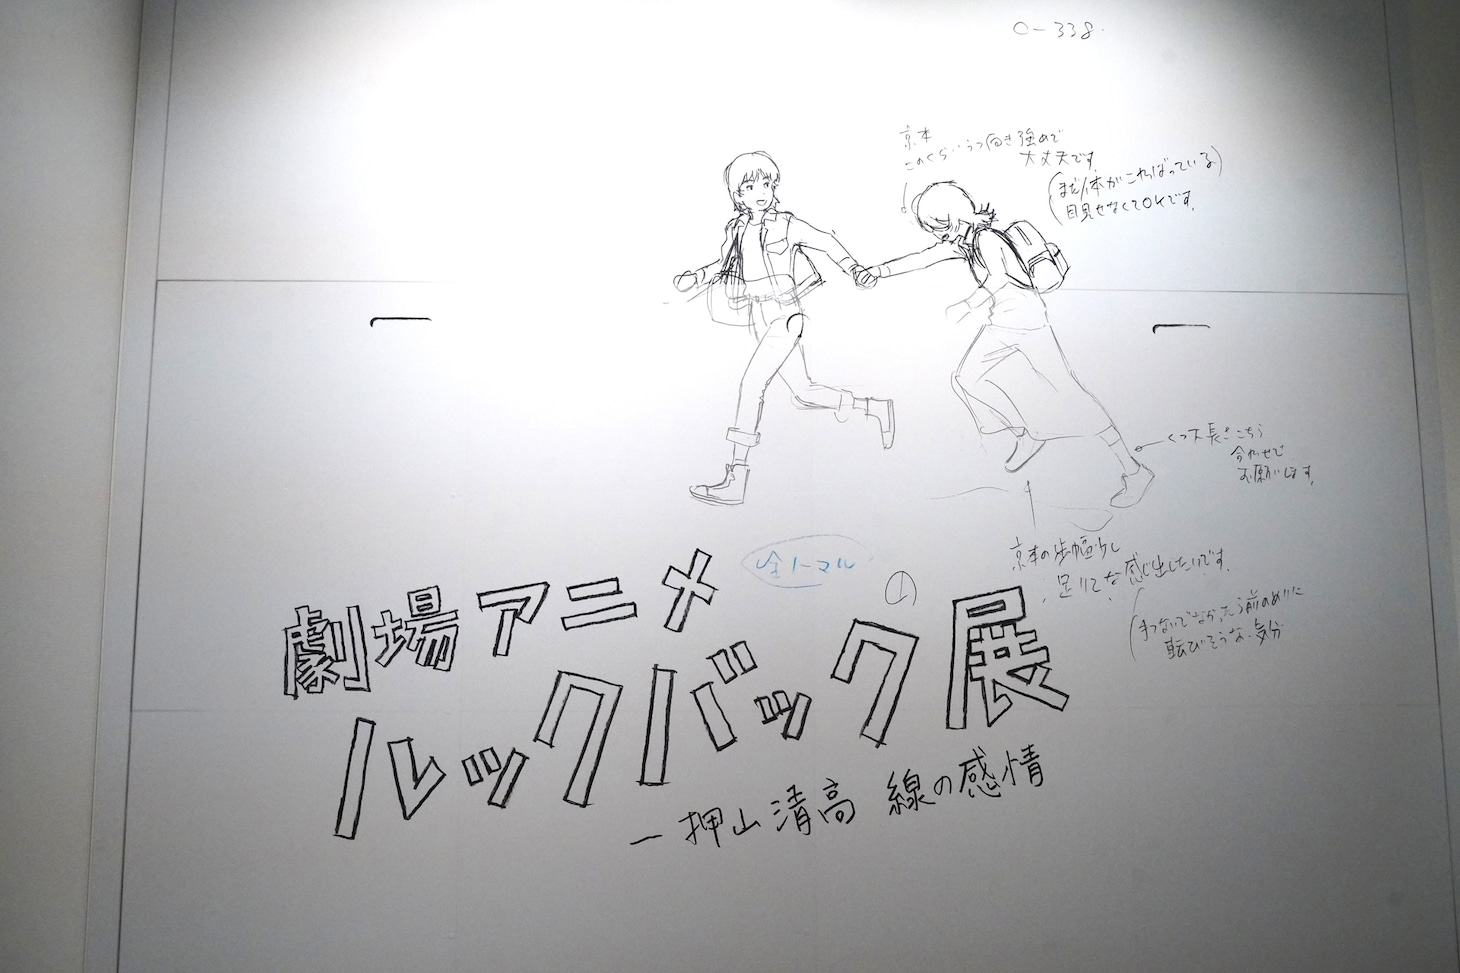 C-338
京本
このくらいうつ向き強めで
大丈夫です。
(まだ体がこわばっている)
目見せなくてOKです。
くつ下長さこちら
合わせで
お願いします。
全トマル
①
京本の歩幅少し
足りてな感じ出したいです。
つないでなかったら前のめりに
転びそうな気分
劇場アニメ
ルックバック展
ー押山清高 線の感情